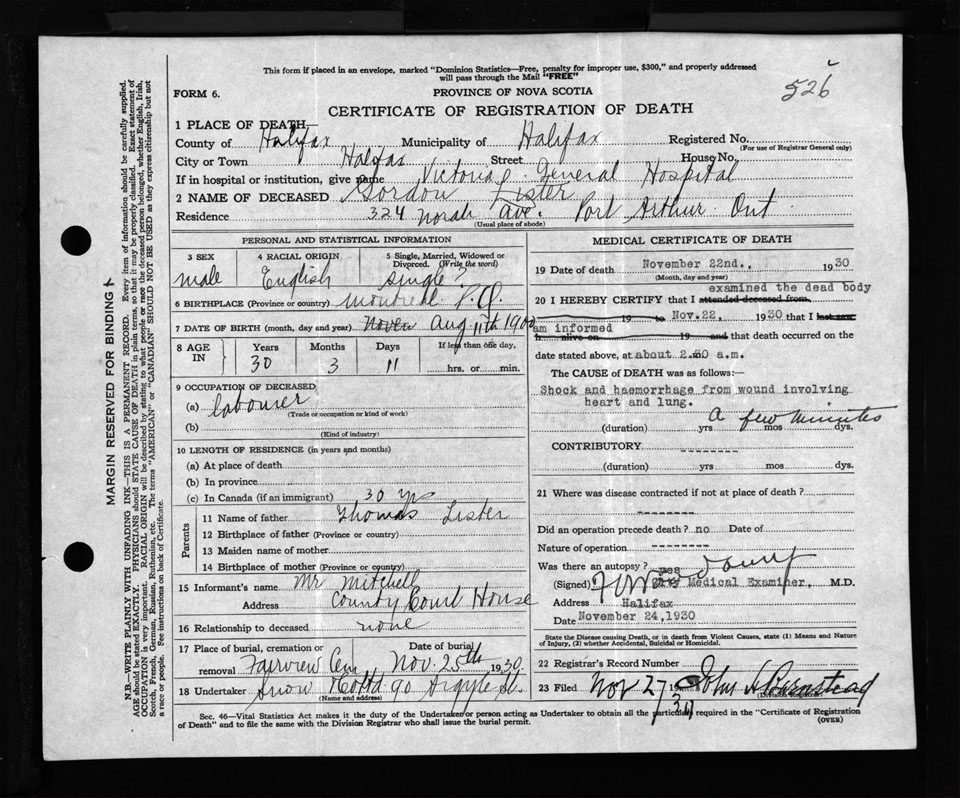 This form if placed in an envelope, marked "Dominion Statistics—Free, penalty for improper use, $300," and properly addressed
will pass through the Mail "FREE"
526
FORM 6.
PROVINCE OF NOVA SCOTIA
CERTIFICATE OF REGISTRATION OF DEATH
1 PLACE OF DEATH—
County of Halifax Municipality of Halifax Registered No.
(For use of Registrar General only)
City or Town Halifax Street House No.
If in hospital or institution, give name Victoria General Hospital
2 NAME OF DECEASED Gordon Lister
Residence 324 Norah Ave. Port Arthur Ont
(Usual place of abode)
PERSONAL AND STATISTICAL INFORMATION
3 SEX 4 RACIAL ORIGIN 5 Single, Married, Widowed or
Divorced. (Write the word)
male English Single ?
6 BIRTHPLACE (Province or country) Montreal P.Q.
7 DATE OF BIRTH (month, day and year) Aug 11th 1900
8 AGE IN Years Months Days If less than one day,
30 3 11 hrs. or min.
9 OCCUPATION OF DECEASED
(a) labourer
(Trade or occupation or kind of work)
(b)
(Kind of industry)
10 LENGTH OF RESIDENCE (in years and months)
(a) At place of death
(b) In province
(c) In Canada (if an immigrant) 30 yrs
Parents
11 Name of father Thomas Lister
12 Birthplace of father (Province or country)
13 Maiden name of mother
14 Birthplace of mother (Province or country)
15 Informant's name Mr Mitchell
Address County Court House
16 Relationship to deceased none
17 Place of burial, cremation or Date of burial
removal Fairview Cem Nov. 25th 1930
18 Undertaker Snow & Co Ltd 90 Argyle St.
(Name and address)
MEDICAL CERTIFICATE OF DEATH
19 Date of death November 22nd., 1930
(Month, day and year)
examined the dead body
20 I HEREBY CERTIFY that I attended deceased from
19 to Nov.22, 1930 that I last saw
am informed
h alive on 19 and that death occurred on the
date stated above, at about 2.30 a.m.
The CAUSE of DEATH was as follows:—
Shock and haemorrhage from wound involving
heart and lung.
A few minutes
(duration) yrs mos dys.
CONTRIBUTORY --------
(duration) yrs mos dys.
21 Where was disease contracted if not at place of death?
--------
Did an operation precede death? no Date of
Nature of operation --------
Was there an autopsy? yes
(Signed) Medical Examiner, M.D.
Address Halifax
Date November 24,1930
State the Disease causing Death, or in death from Violent Causes, state (1) Means and Nature
of Injury, (2) whether Accidental, Suicidal or Homicidal.
22 Registrar's Record Number
23 Filed Nov 27 19 30 John
Sec. 46—Vital Statistics Act makes it the duty of the Undertaker or person acting as Undertaker to obtain all the particulars required in the "Certificate of Registration
of Death" and to file the same with the Division Registrar who shall issue the burial permit.
(OVER)
MARGIN RESERVED FOR BINDING
N.B.—WRITE PLAINLY WITH UNFADING INK—THIS IS A PERMANENT RECORD. Every item of information should be carefully supplied.
AGE should be stated EXACTLY. PHYSICIANS should STATE CAUSE OF DEATH in plain terms, so that it may be properly classified. Exact statement of
OCCUPATION is very important. RACIAL ORIGIN will be described by stating to what people or race the deceased person belonged, whether English, Irish,
Scotch, French, German, Russian, Ruthenian, etc. The terms "AMERICAN" or "CANADIAN" SHOULD NOT BE USED as they express citizenship but not
a race or people. See instructions on back of Certificate.